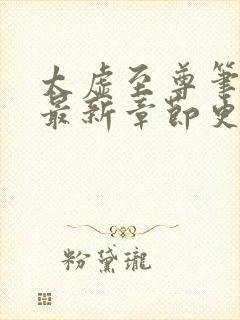 太虚至尊笔
最新章节史
粉黛瓏